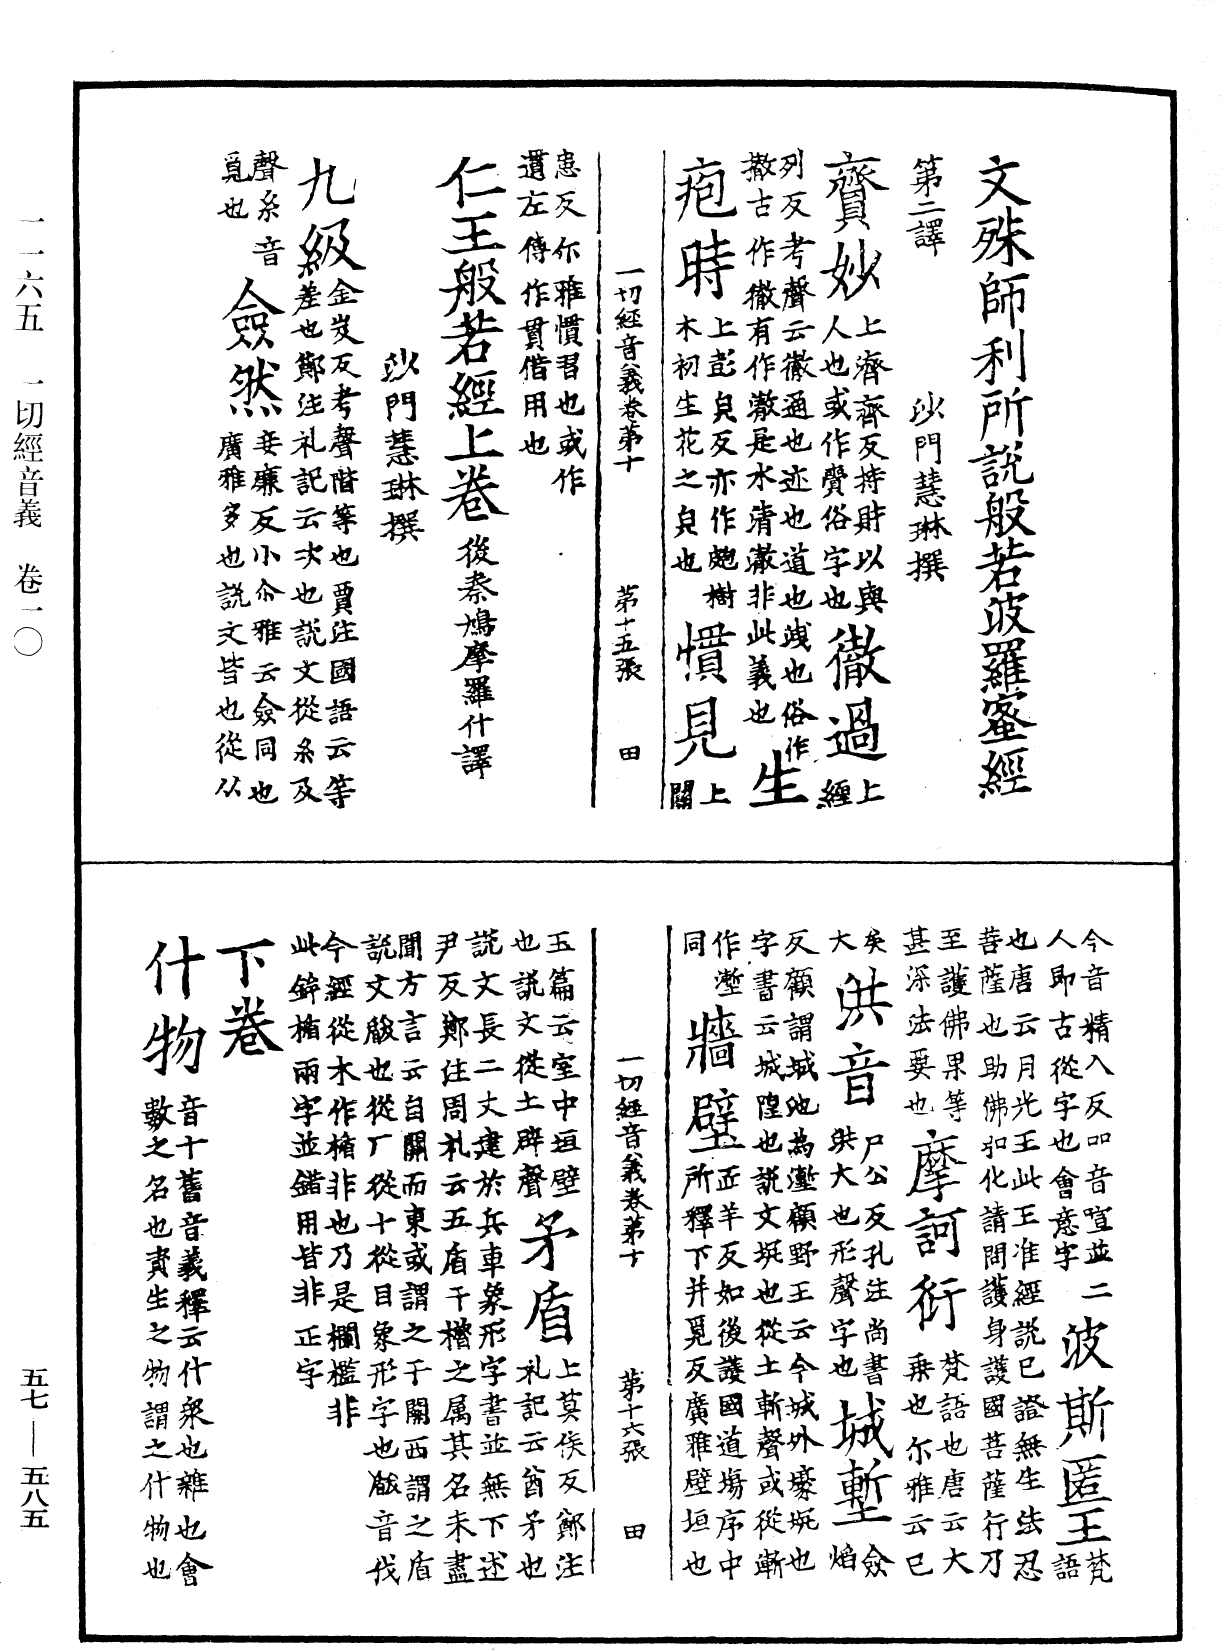 文殊師利所說般若波羅蜜經
第二譯 沙門慧琳撰
賷妙上濟齊反持財以與人也或作賫俗字也徹過上纏
列反考聲云徹通也迹也道也洩也俗作撤古作徹有作澈是水清澈非此義也生
疱時上彭皃反亦作皰樹木初生花之皃也慣見上關
一切經音義卷第十 第十五張 田
患反尒雅慣習也或作遺左傳作貫借用也
仁王般若經上卷 後秦鳩摩羅什譯
沙門慧琳撰
九級金岌反考聲階等也賈注國語云等差也鄭注礼記云次也說文從糸及
聲糸音覓也僉然妾廉反小尒雅云僉同也廣雅多也説文皆也從亼
今音精入反吅音喧並二人即古從字也會意字波斯匿王梵語
也唐云月光王此王准經説已證無生法忍菩薩也助佛弘化請問護身護國菩薩行乃
至護佛果等甚深法要也摩訶衍梵語也唐云大乘也尒雅云已
矣大洪音尸公反孔注尚書洪大也形聲字也城塹僉焰
反顧謂城池為壍顧野王云今城外壕坑也字書云城隍也説文坑也從土斬聲或從漸
作壍同牆壁匠羊反如後護國道場序中所釋下并覓反廣雅壁垣也
一切經音義卷第十 第十六張 田
玉篇云室中垣壁也説文從土辟聲矛盾上莫侯反鄭注礼記云酋矛也
説文長二丈建於兵車象形字書並無下述尹反鄭注周礼云五盾干櫓之属其名未盡
聞方言云自關而東或謂之干關西謂之盾説文瞂也從厂從十從目象形字也瞂音伐
今經從木作楯非也乃是欄檻非此鉾楯兩字並錯用皆非正字
下卷
什物音十舊音義釋云什衆也雜也會數之名也資生之物謂之什物也
一一六五 一切經音義 卷一〇
五七—五八五